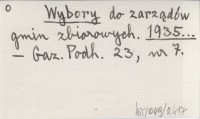 O
Wybory do zarządów
gmin zbiorowych. 1935...
– Gaz. Podh. 23, nr 7.